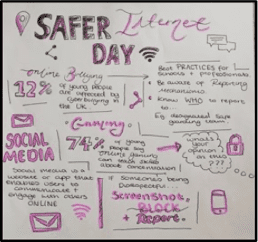 SAFER Internet
DAY
Online Bullying
12% of young people
are affected by
Cyberbullying in
the UK
Best PRACTICES for
schools + professionals.
Be aware of Reporting
Mechanisms
Know WHO to report
to
Eg designated safe
guarding
Gaming
74% of young
people say
online gaming
can teach skills
about concentration
whats
your
opinion
on this
???
SOCIAL
MEDIA
Social media is a
website or app that
enables users to
communicate +
engage with users
ONLINE
If someones being
disrespectful...
Screenshot,
BLOCK
+
Report.